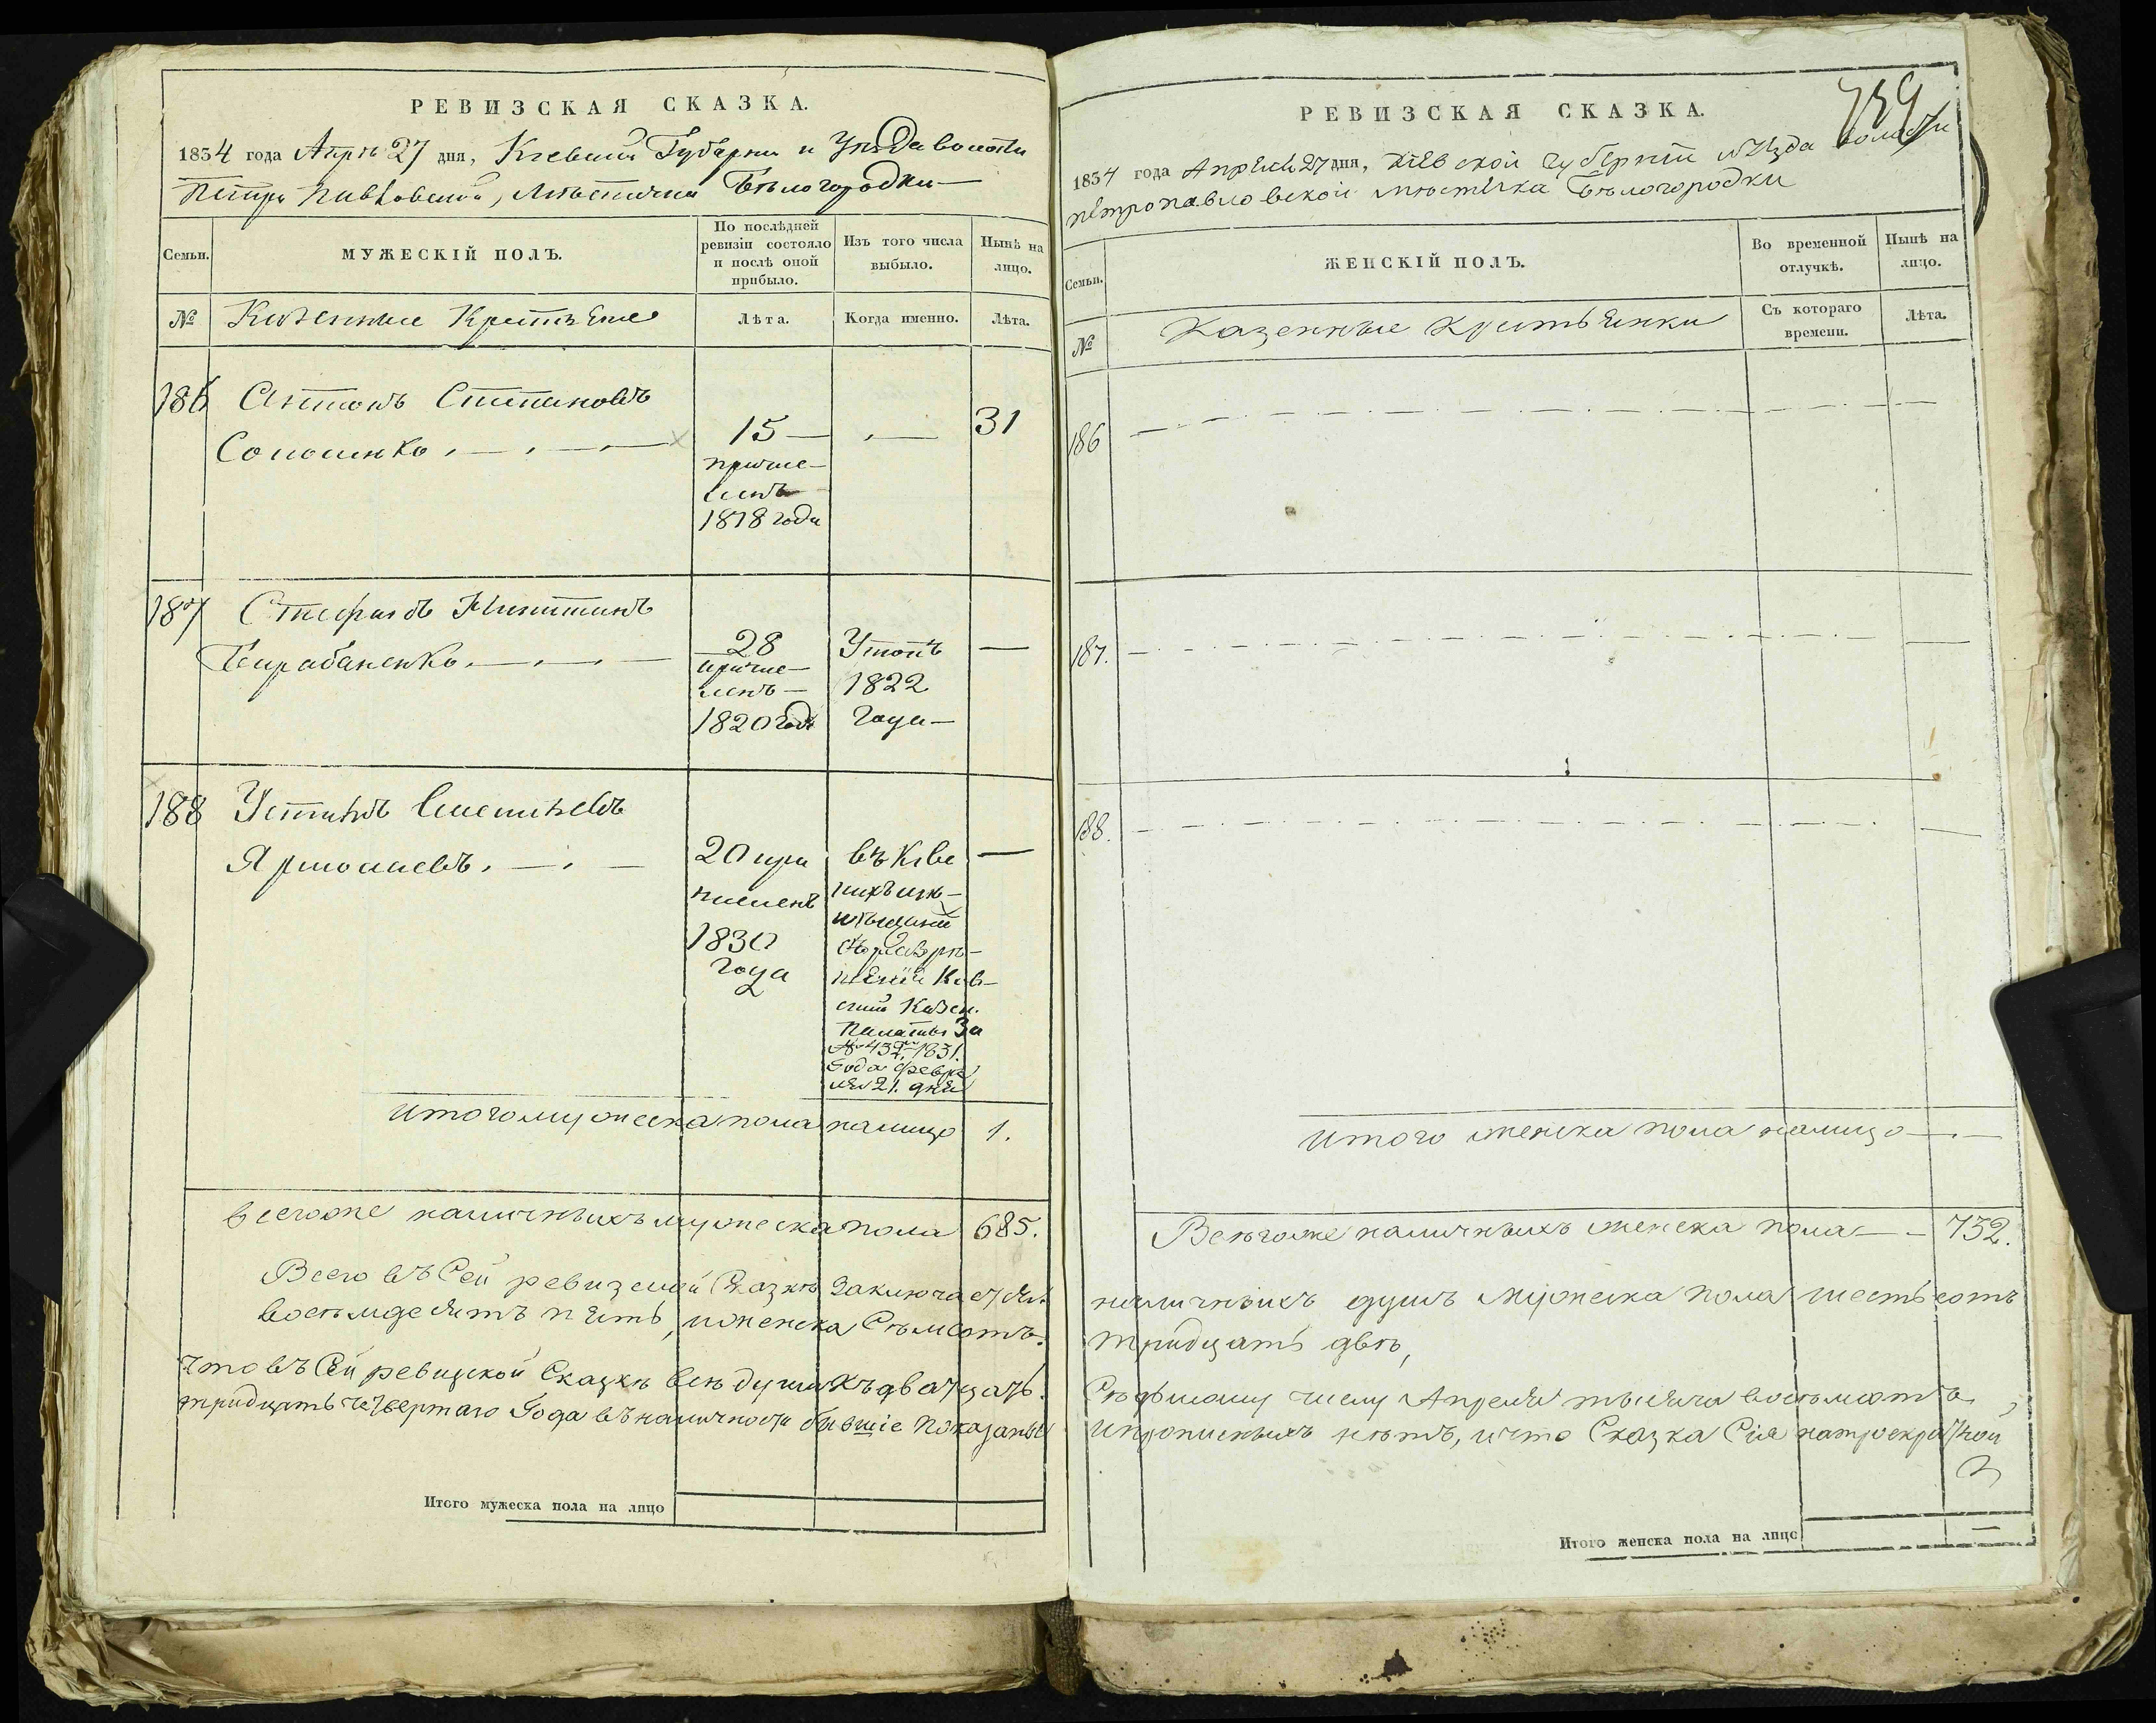 РЕВИЗСКАЯ СКАЗКА.
1834 года Апрѣ 27 дня, Кіевской Губерніи и Уѣзда волости
Петро Павловской, Мѣстечка Бѣлогородки
Семьи.
МУЖЕСКІЙ ПОЛЪ.
По послѣдней ревизіи состояло и послѣ оной прибыло.
Изъ того числа выбыло.
Нынѣ на лицо.
№
Казенные Крестьяне
Лѣта.
Когда именно.
Лѣта.
186 Антонъ Степановъ
Соломенко
15
31
причис-
ленъ
1818 года
187 Стефанъ Никитинъ
Барабаненко
28
причис-
ленъ
1820 года
Умопъ
1822
года
188 Устинъ
20 при
численъ
1830
года
въ Ківе
Кіев-
ской Казен.
Палаты За
1831.
Года февра
ля 21. дня
Итого мужеска пола налицо 1.
Всего же наличныхъ мужеска пола 685.
Всего въ Сей ревизской Сказкѣ Заключается
восемьдесятъ пять, и женска Семьсотъ
Что въ Сей ревизской Сказкѣ всѣ души къ двадцать
тридцать четвертаго Года въ наличности бывшіе показаны
Итого мужеска пола на лицо
РЕВИЗСКАЯ СКАЗКА.
1834 года Апреля 27 дня, Кіевской губерніи и Уѣзда волости
Петропавловской мѣстечка Бѣлогородки
Семьи.
ЖЕНСКІЙ ПОЛЪ.
Во временной отлучкѣ.
Нынѣ на лицо.
№
Казенные Крестьянки
Съ котораго времени.
Лѣта.
186
187.
188.
Итого женска пола налицо
Всего же наличныхъ женска пола 732.
наличныхъ душъ мужеска пола шестьсотъ
тридцать двѣ,
Седьмому числу Апреля тысяча восемьсотъ
и прописныхъ нѣтъ, и что Сказка Сія
Итого женска пола на лицо